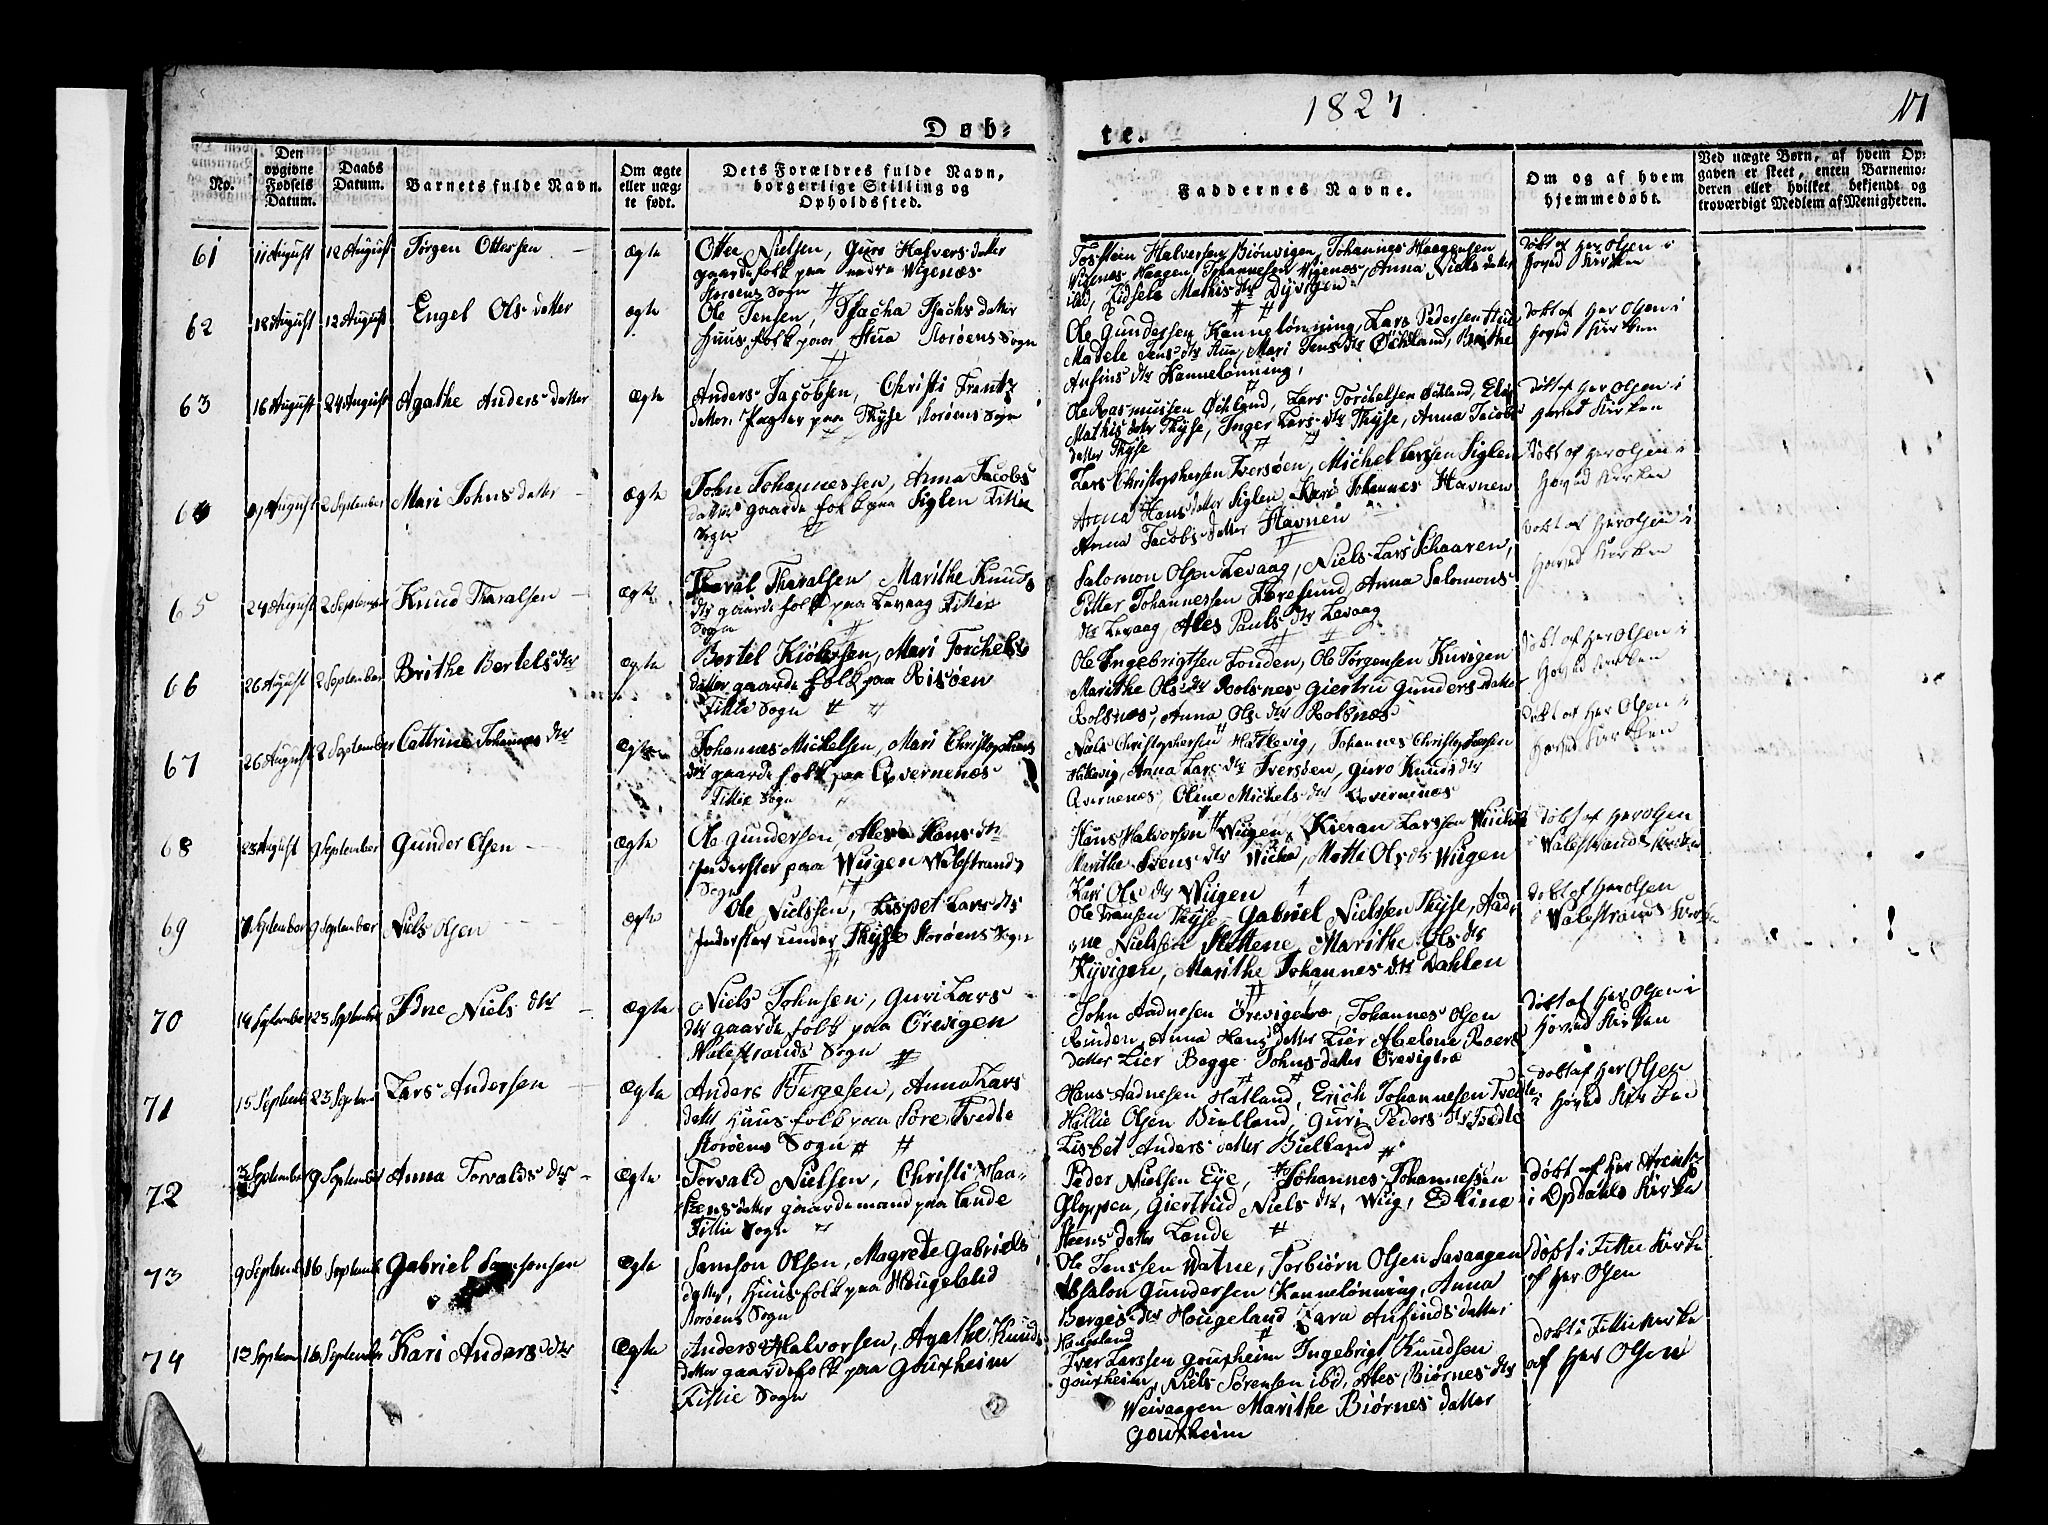 1827
17
Døb-
te.
No.
Den opgivne Fødsels Datum.
Daabs Datum.
Barnets fulde Navn.
Om ægte eller uæg-te født.
Dets Forældres fulde Navn, borgerlige Stilling og Opholdssted.
Faddernes Navne.
Om og af hvem hjemmedøbt.
Ved uægte Børn, af hvem Op-gaven er skeet, enten Barnemo-deren eller hvilket bekjendt og troværdigt Medlem af Menigheden.
61
11 August
12 August
Jørgen Ottersen
Ægte
Otter Nielsen, Guro Halvers datter
gaardefolk paa nedre Wigenæs
Storøens Sogn
Tosstein Halversen Biønvigen, Johannes Haagensen
Wigenæs Haagen Johannesen Wigenæs, Anna Niels datter
ibd, Zidsele Mathis dtr Dyvigen
døbt af Her Olsen i
Hoved Kirken
62
12 August
Engel Ols datter
Ægte
Ole Jensen, Isachs datter
Huusfolk paa Stua Storøens Sogn
Ole Gundersen Kannelønning, Lars Pedersen Stua
Madele Jens dtr Stua, Mari Jens dtr Øchland, Brithe
Anfins dtr Kannelønning,
døbt af Her Olsen i
Hoved Kirken
63
16 August
24 August
Agathe Anders datter
Ægte
Anders Jacobsen, Christi Frantz
datter. Pagter paa Thyse Storøens Sogn
Ole Rasmussen Øchland, Lars Torchelsen Øchland,
Mathis datter Thyse, Inger Lars dtr Thyse, Anna Jacobs
datter Thyse
døbt af Her Olsen i
Hoved Kirken
64
August
2 September
Mari Johns datter
Ægte
John Johannessen, Anna Jacobs
datter gaardefolk paa Siglen Fittie
Sogn
Lars Christophersen Iversøen, Michel Larssen Siglen
Anna Hans datter Siglen Kari Johannes Havnen
Anna Jacobs datter Havnen
døbt af Her Olsen i
Hoved Kirken
65
24 August
2 September
Knud Tharalsen
Ægte
Tharal Tharalsen Marithe Knuds
dtr gaardefolk paa Levaag Fittie
Sogn
Salomon Olsen Levaag, Niels Lars Schaaren,
Pitter Johannessen Anna Salomons
dtr Levaag Ales Pauls dtr Levaag
døbt af Her Olsen i
Hoved Kirken
66
26 August
2 September
Brithe Bertels dtr
Ægte
Bertel Mari Torchels
datter gaardefolk paa Risøen
Fittie Sogn
Ole Ingebrigtsen Fonden, Ole Jørgensen
Marithe Ols dtr Rolsnes Giertru Gunders datter
Rolsnæs, Anna Ols dtr Rolsnæs
døbt af Her Olsen i
Hoved Kirken
67
26 August
2 September
Cattrine Johannes dtr
Ægte
Johannes Michelsen, Mari Christophers
dtr gaardefolk paa Qvernenæs
Fittie Sogn
Niels Christophersen Hatlevig, Johannes Christophersen
Hatlevig, Anna Lars dtr Iversøen, Guro Knuds dtr
Qvernenæs, Oline Michels dtr Qvernenæs
døbt af Her Olsen i
Hoved Kirken
68
August
9 September
Gunder Olsen
Ægte
Ole Gundersen, Hans dtr
Inderster paa Wiigen Walestrands
Sogn
Hans Halvorsen Wiigen, Larsson
Marithe Svens dtr Mette Ols dtr Wiigen
Kari Ols dtr Wiigen
døbt af Her Olsen
i Walestrands Kirken
69
7 September
9 September
Niels Olsen
Ægte
Ole Nielssen, Lispet Lars dtr
Inderster under Thyse Storøens Sogn
Ole Fransen Thyse Gabriel Nielssen Thyse, Aad-
ne Nielssen Marithe Ols dtr
Kyvigen, Marithe Johannes dtr Dahlen
døbt af Her Olsen
i Walestrands Kirken
70
14 September
23 September
Idne Niels dtr
Ægte
Niels Johnsen, Guri Lars
dtr gaardefolk paa Ørevigen
Walestrands Sogn
John Aadnesen Johannes Olsen
Rinden, Anna Hans datter Lier Abelone Roers
datter Lier Begge Johns datter Ørevigtræ
døbt af Her Olsen i
Hoved Kirken
71
15 Septemb
23 Septem
Lars Andersen
Ægte
Anders Børgesen, Anna Lars
dattr Huusfolk paa Søre Tvedte
Storøens Sogn
Hans Aadnesen Hatland, Erich Johannesen Tvedte
Hellie Olsen Bielland, Guri Peders dtr Tvedte
Lisbet Anders datter Bielland
døbt af Her Olsen
i Hoved Kirken
72
September
9 September
Anna Torvalds dtr
Ægte
Torvald Nielsen, Christi Maa-
gaardemand paa Lande
Fittie Sogn
Peder Nielsen Eye, Johannes Johannessen
Gloppen, Giertrud Niels dtr, Wiig,
Steens datter Lande
Døbt af Her
i Opdahls Kirke
73
9 Septemb
16 Septemb
Gabriel Samsonsen
Ægte
Samson Olsen, Magrete Gabriels
datter, Huusfolk paa Hougeland
Storøens Sogn
Ole Jenssen Watne, Torbiørn Olsen Sævaagen
Absalon Gundersen Kannelønning, Anna
Børges dtr Hougeland Zara Anfinds datter
Hougeland
Døbt i Fittie Kirke
af Her Olsen
74
12 Septem
16 September
Kari Anders dtr
Ægte
Anders Halvorsen, Agathe Knuds
datter gaardefolk paa Gourheim
Fittie Sogn
Iver Larssen Gourheim Ingebrigt Knudsen
Gourheim, Niels Sørensen ibd, Ales Biørnes dtr
Weivaagen Marithe Biørnes datter
Gourheim
døbt i Fittie Kirke
af Her Olsen